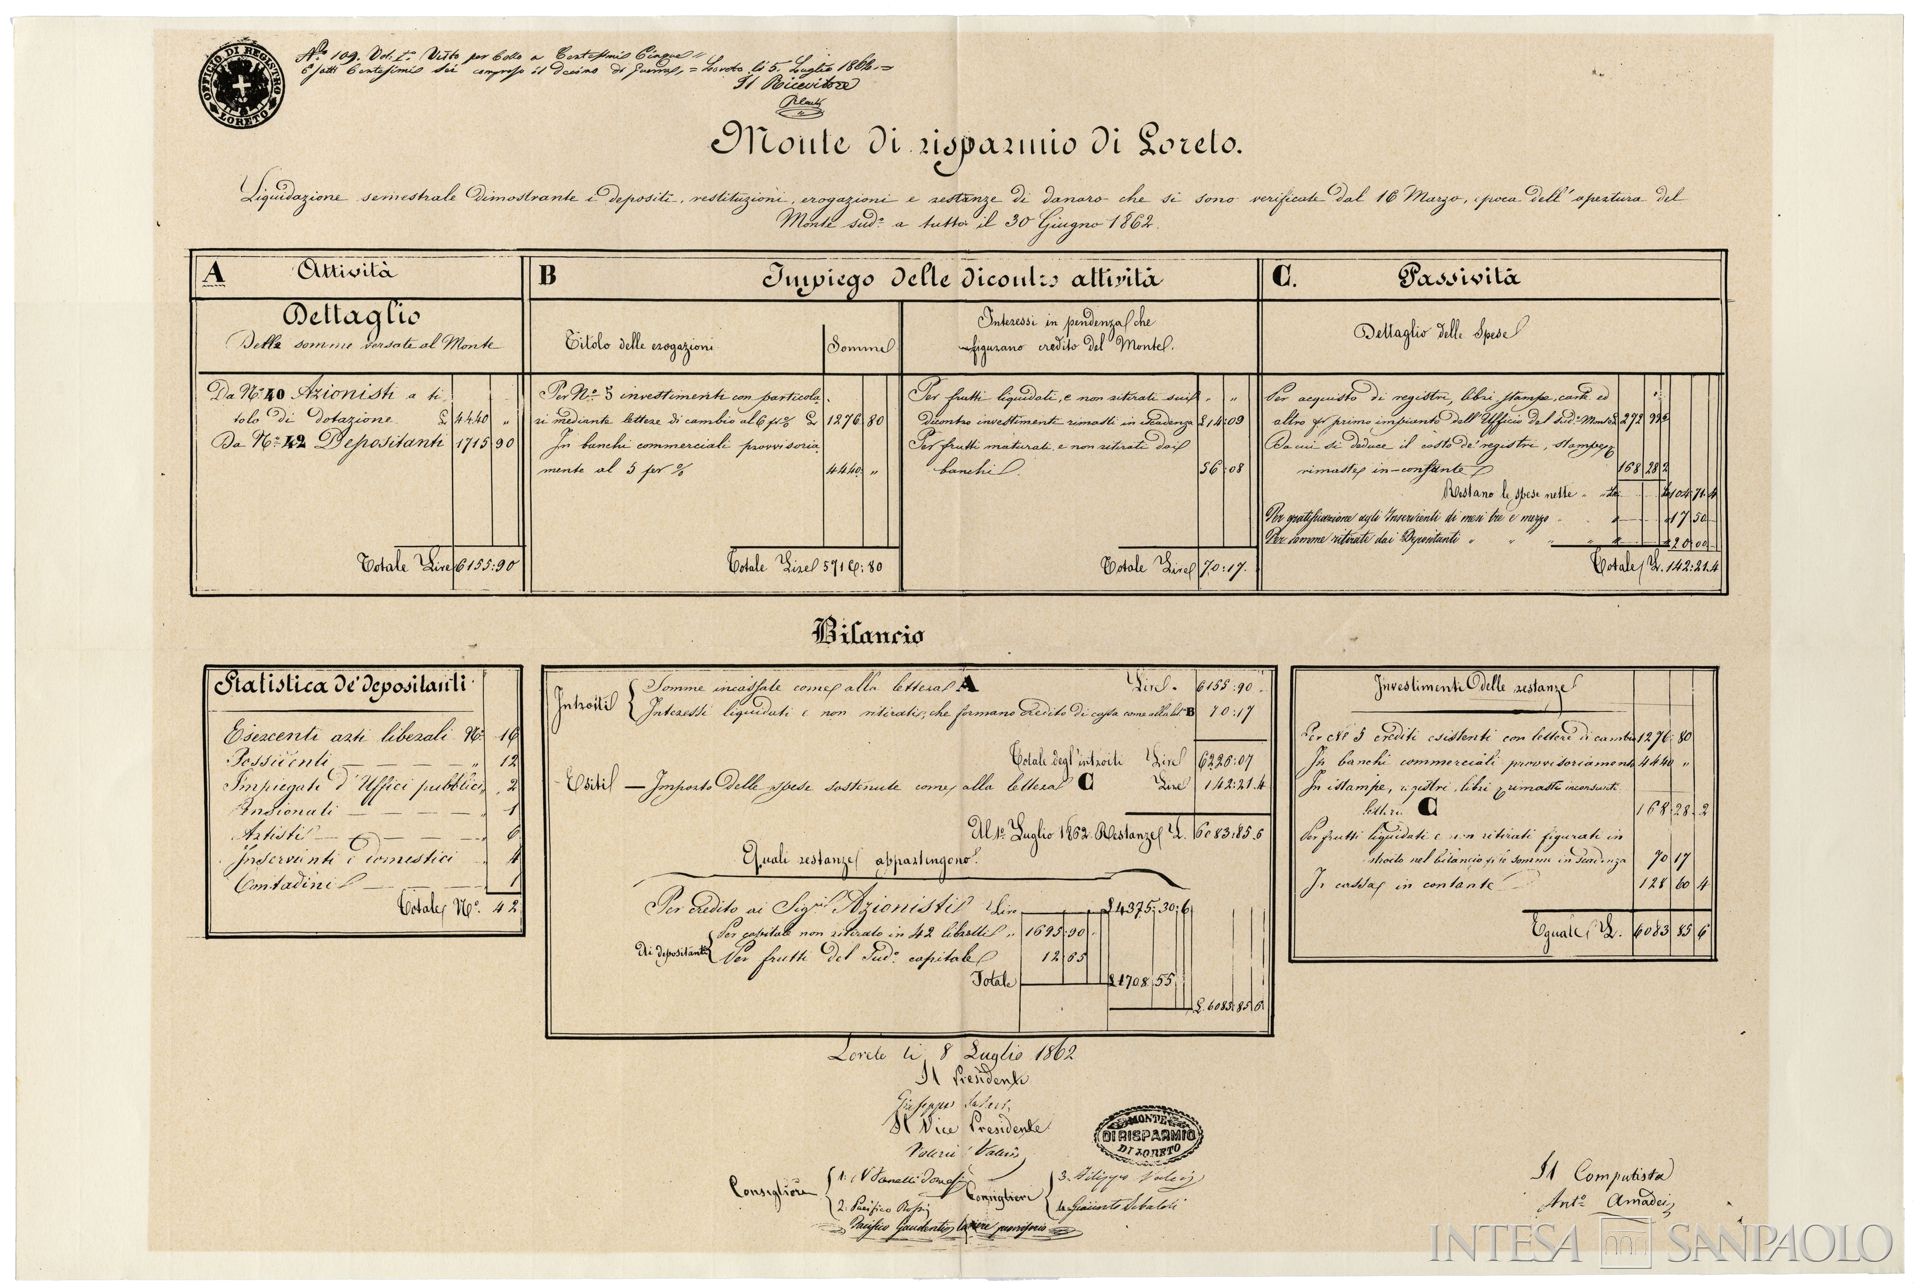 OFFICIO DI REGISTRO
LORETO
N.º 109. Vol. I.º Visto per bollo a Centesimi Cinque
e fatti Centesimi Sei compreso il decimo di Guerra, = Loreto li 5. Luglio 1862. =
Il Ricevitore
Monte di risparmio di Loreto.
Liquidazione semestrale dimostrante i depositi, restituzioni, erogazioni e restanze di danaro che si sono verificate dal 16 Marzo, epoca dell'apertura del
Monte sud.º a tutto il 30 Giugno 1862.
A Attività
B Impiego delle dicontro attività
C. Passività
Dettaglio
Delle somme versate al Monte
Titolo delle erogazioni
Somme
Interessi in pendenza che
figurano credito del Monte.
Dettaglio delle Spese
Da N.º 40 Azionisti a ti
tolo di dotazione £ 4440 "
Da N.º 42 Depositanti 1715 90
Totale Lire 6155:90
Per N.º 5 investimenti con particola-
ri mediante lettere di cambio al 6 p% £ 1276 80
In banchi commerciali provvisoria
mente al 5 per % 4440 "
Totale Lire 5716:80
Per frutti liquidati, e non ritirati sui " "
dicontro investimenti rimasti in iscadenza £ 14:09
Per frutti maturati, e non ritirati dai
banchi 56:08
Totale Lire 70:17.
Per acquisto di registri, libri stampe, carte ed "
altro per primo impianto dell'Ufficio del sud.º Monte £ 272 99 6
Da cui si deduce il costo de' registri, stampe
rimaste in consunte 168 28 2
Restano le spese nette " £ 104.71.4
Per gratificazione agli Inservienti di mesi tre e mezzo " 17 50
Per somme ritirate dai Depositanti " " " 20:00
Totale £. 142:21.4
Bilancio
Statistica de' depositanti
Esercenti arti liberali N.º 16
Possidenti " 12
Impiegati d'Uffici pubblici " 2
Pensionati 1
Artisti 6
Inservienti e domestici 4
Contadini 1
Totale N.º 42
Introiti
Somme incassate come alla lettera A Lire 6155:90
Interessi liquidati e non ritirati, che formano credito di cassa come alla lett. B 70:17
Totale degl'introiti Lire 6226:07
Esiti — Importo delle spese sostenute come alla lettera C Lire 142:21.4
Al 1.º Luglio 1862 Restanze £. 6083:85.6
Quali restanze appartengono.
Per credito ai Sig.ri Azionisti Lire £ 4375:30:6
Ai depositanti
Per capitale non ritirato in 42 libretti " 1695:90
Per frutti del Sud.º capitale 12 65
Totale £ 1708 55
£. 6083:85.6
Investimenti delle restanze
Per N.º 5 crediti esistenti con lettere di cambio 1276:80
In banchi commerciali provvisoriamente 4440 "
In istampe, registri, libri rimasti inconsunti
lettera C 168.28.2
Per frutti liquidati e non ritirati figurati in
introito nel bilancio fra le somme in scadenza 70 17
In cassa in contante 128 60 4
Eguale £. 6083 85 6
Loreto li 8 Luglio 1862
Il Presidente
Il Vice Presidente
Valerio Valeri
Consigliere
2. Pacifico Rossi
Consiglieri
4. Giacinto Sebaldi
Pacifico Gaudenti
MONTE
DI RISPARMIO
DI LORETO
Il Computista
Ant.º Amadei
INTESA SANPAOLO